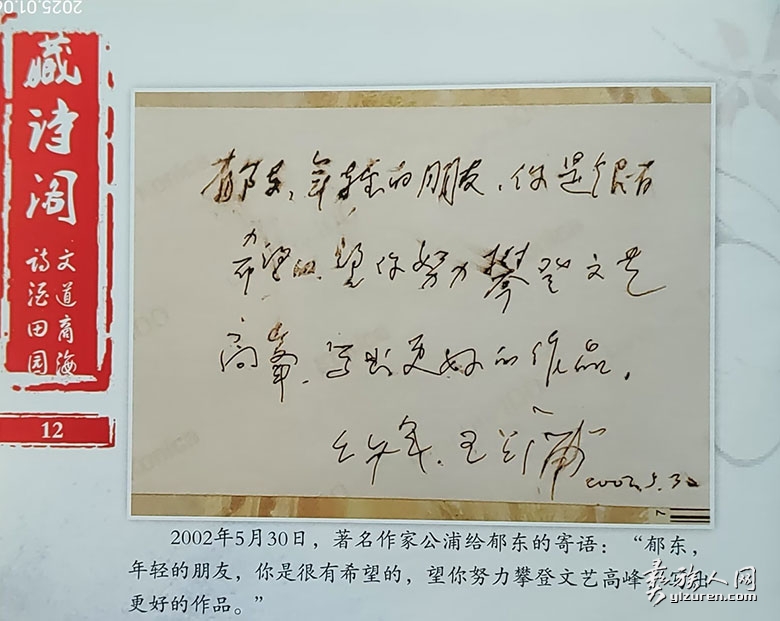 2025.01.0
藏诗阁
文道商海
诗酒田园
12
郁东，年轻的朋友，你是很有
希望的，望你努力攀登文艺
高峰，写出更好的作品。
公浦
2002.5.30
2002年5月30日，著名作家公浦给郁东的寄语：“郁东，
年轻的朋友，你是很有希望的，望你努力攀登文艺高峰，写出
更好的作品。”
彝族人网
yizuren.com